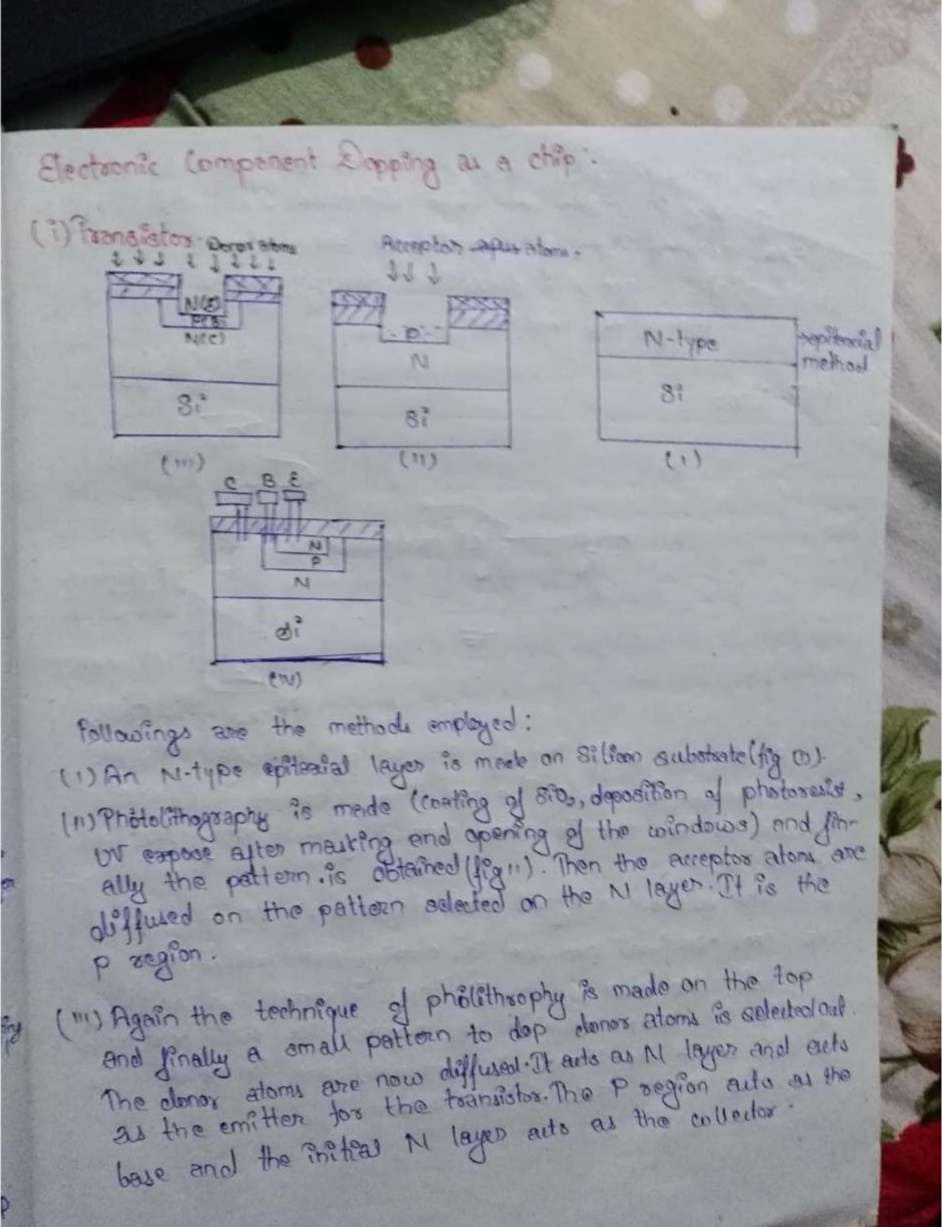 Electronic Component Dopping as a chip:
(i) Transistor:
Donor atoms
Acceptor atoms.
N(E)
P(B)
N(C)
Si
(III)
P
N
Si
(II)
N-type
Si
(I)
→epitexial
method
C B E
N
P
N
Si
(IV)
Followings are the methods employed:
(I) An N-type epitexial layer is made on Silicon substrate (fig (I)).
(II) Photolithography is made (coating of SiO₂, deposition of photoresist,
UV expose after masking and opening of the windows) and fin-
ally the pattern is obtained (fig II). Then the acceptor atoms are
diffused on the pattern selected on the N layer. It is the
P region.
(III) Again the technique of pholithrophy is made on the top
and finally a small pattern to dop donor atoms is selected out.
The donor atoms are now diffused. It acts as N layer and acts
as the emitter for the transistor. The P region acts as the
base and the initial N layer acts as the collector.